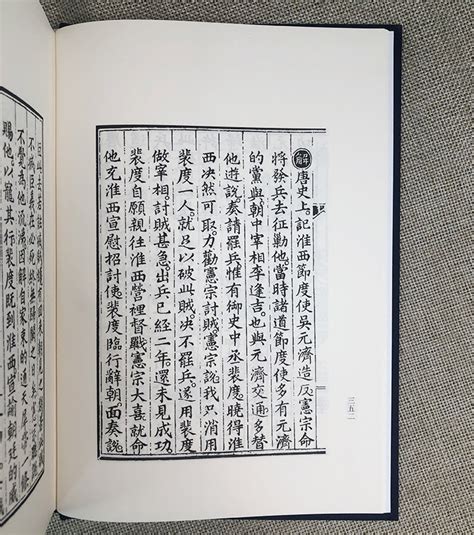 解 唐史上記淮西節度使吳元濟造反憲宗命
將發兵去征勦他當時諸道節度使多有元濟
的黨與朝中宰相李逢吉也與元濟交通多替
他遊說奏請罷兵惟有御史中丞裴度曉得淮
西決然可取力勸憲宗討賊憲宗說我只消用
裴度一人就足以破此賊決不罷兵遂用裴度
做宰相討賊甚急出兵已經二年還未見成功
裴度自願親往淮西營裡督戰憲宗大喜就命
他充淮西宣慰招討使裴度臨行辭朝面奏說
三五二
不覺為他流涕因解自家束的通天犀帶一條
賜他以寵其行裴度既到淮西宣諭朝廷的威